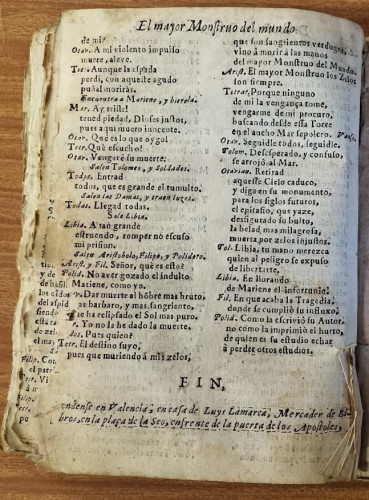 El mayor Monstruo del mundo.
de mi?
Otav. A mi violento impulso
muere, aleve.
Tetr. Aunque la espada
perdi, con aqueste agudo
puñal moriràs.
Encuentra a Mariene, y hierela.
Mar. Ay triste!
tened piedad, Dioses justos,
pues a qui muero inocente.
Otav. Què es lo que oygo!
Tetr. Què escucho!
Otav. Vengarè su muerte.
Salen Tolomeo, y Soldados.
Todos. Entrad
todos, que es grande el tumulto.
Salen las Damas, y traen luzes.
Todas. Llegad todas.
Sale Libia.
Libia. A tan grande
estruendo, romper no escuso
mi prision.
Salen Aristobolo, Filipo, y Polidoro.
Arist. y Fil. Señor, que es esto?
Polid. No aver gozado el indulto
Mariene, como yo.
Dar muerte al hõbre mas bruto,
mas barbaro, y mas sangriento,
ha eclipsado el Sol mas puro.
Yo no la he dado la muerte.
dos. Pues quien?
Tetr. El destino suyo,
pues que muriendo à mis zelos,
que son sangrientos verdugos,
vino à morir à las manos
del mayor Monstruo del Mundo.
Arist. El mayor Monstruo los Zelos
son siempre.
Tetrar. Porque ninguno
de mi la vengança tome,
vengarme de mi procuro,
buscando desde esta Torre
en el ancho Mar sepolcro. Vanse.
Otav. Seguidle todos, seguidle.
Tolom. Desesperado, y confuso,
se arrojò al Mar.
Otavian. Retirad
aqueste Cielo caduco,
y diga en su monumento,
para los siglos futuros,
el epitafio, que yaze,
desfigurado su bulto,
la beldad mas milagrosa,
muerta por zelos injustos.
Pol. Libia, tu mano merezca
quien al peligro se expuso
de libertarte.
Libia. En llorando
de Mariene el infortunio
Fil. En que acaba la Tragedia,
donde se cumpliò su influxo.
Polid. Como la escriviò su Autor,
no como la imprimiò el hurto,
de quien es su estudio echar
à perder otros estudios.
FIN,
endense en Valencia, en casa de Luys Lamarca, Mercader de Li-
bros, en la plaça de la Seo, enfrente de la puerta de los Apostoles.